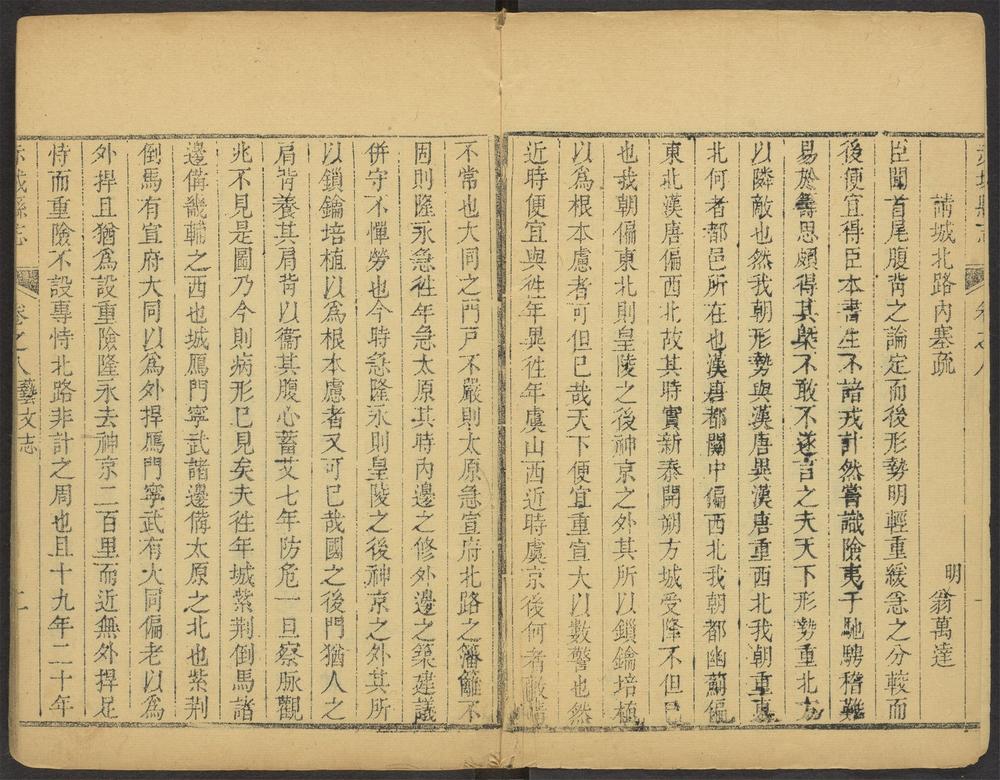 請城北路內塞疏
明 翁萬達
臣聞首尾腹背之論定而後形勢明輕重緩急之分較而
後便宜得臣本書生不諳戎計然嘗識險夷于馳騁稽難
易於壽思頗得其槩不敢不遂言之夫天下形勢重北方
以隣敵也然我朝形勢與漢唐異漢唐重西北我朝重東
北何者都邑所在也漢唐都關中偏西北我朝都幽薊偏
東北漢唐偏西北故其時實新秦開朔方城受降不但已
也我朝偏東北則皇陵之後神京之外其所以鎖鑰培植
以爲根本慮者可但已哉天下便宜重宣大以數警也然
近時便宜與往年異往年虞山西近時虞京後何者嚴靖
不常也大同之門戸不嚴則太原急宣府北路之籓籬不
固則隆永急往年急太原其時內邊之修外邊之築建議
併守不憚勞也今時急隆永則皇陵之後神京之外其所
以鎖鑰培植以爲根本慮者又可已哉國之後門猶人之
肩背養其肩背以衞其腹心蓄艾七年防危一旦察脉觀
兆不見是圖乃今則病形已見矣夫往年城紫荆倒馬諸
邊備畿輔之西也城鴈門寧武諸邊備太原之北也紫荆
倒馬有宣府大同以爲外捍鴈門寧武有大同偏老以爲
外捍且猶爲設重險隆永去神京二百里而近無外捍足
恃而重險不設專恃北路非計之周也且十九年二十年
赤城縣志 卷之八 藝文志 二